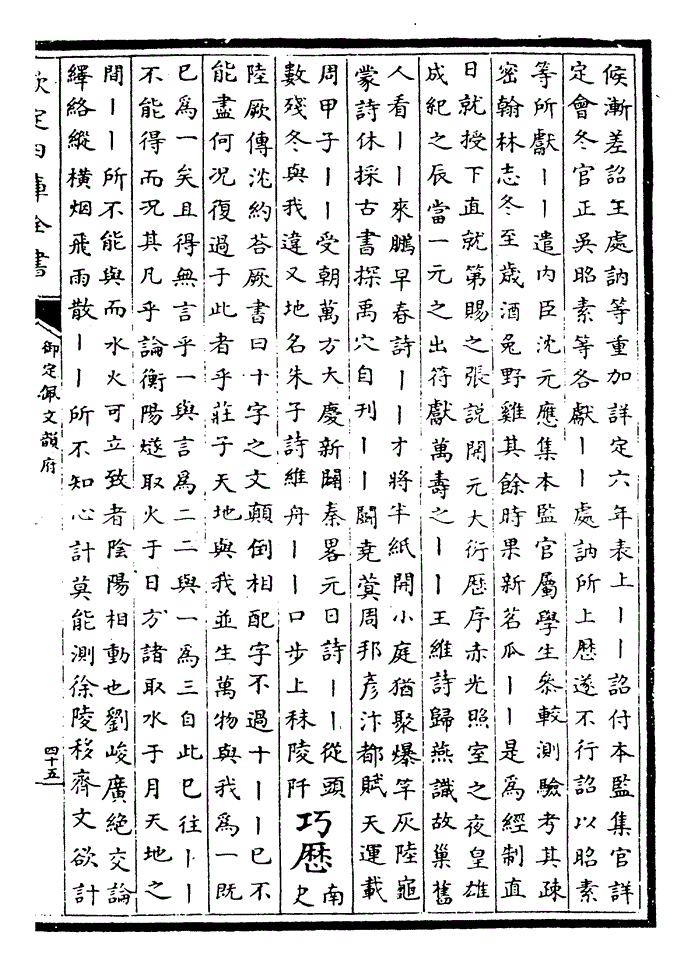 候漸差詔王處訥等重加詳定六年表上丨丨詔付本監集官詳
定會冬官正吳昭素等各獻丨丨處訥所上歴遂不行詔以昭素
等所獻丨丨遣内臣沈元應集本監官屬學生叅較測驗考其疎
密翰林志冬至歳酒兔野雞其餘時果新茗瓜丨丨是為經制直
日就授下直就第賜之張説開元大衍歴序赤光照室之夜皇雄
成紀之辰當一元之出符獻萬壽之丨丨王維詩歸燕識故巢舊
人看丨丨來鵬早春詩丨丨才將半紙開小庭猶聚爆竿灰陸龜
蒙詩休採古書探禹穴自刊丨丨鬭堯蓂周邦彦汴都賦天運載
周甲子丨丨受朝萬方大慶新闢秦畧元日詩丨丨從頭
數殘冬與我違又地名朱子詩維舟丨丨口步上秣陵阡
巧歴
南
史
陸厥傳沈約荅厥書曰十字之文顛倒相配字不過十丨丨已不
能盡何况復過于此者乎莊子天地與我並生萬物與我為一既
已為一矣且得無言乎一與言為二二與一為三自此已往丨丨
不能得而况其凡乎論衡陽燧取火于日方諸取水于月天地之
間丨丨所不能與而水火可立致者陰陽相動也劉峻廣絶交論
繹絡縱橫烟飛雨散丨丨所不知心計莫能測徐陵移齊文欲計
欽定四庫全書
御定佩文韻府
四十五